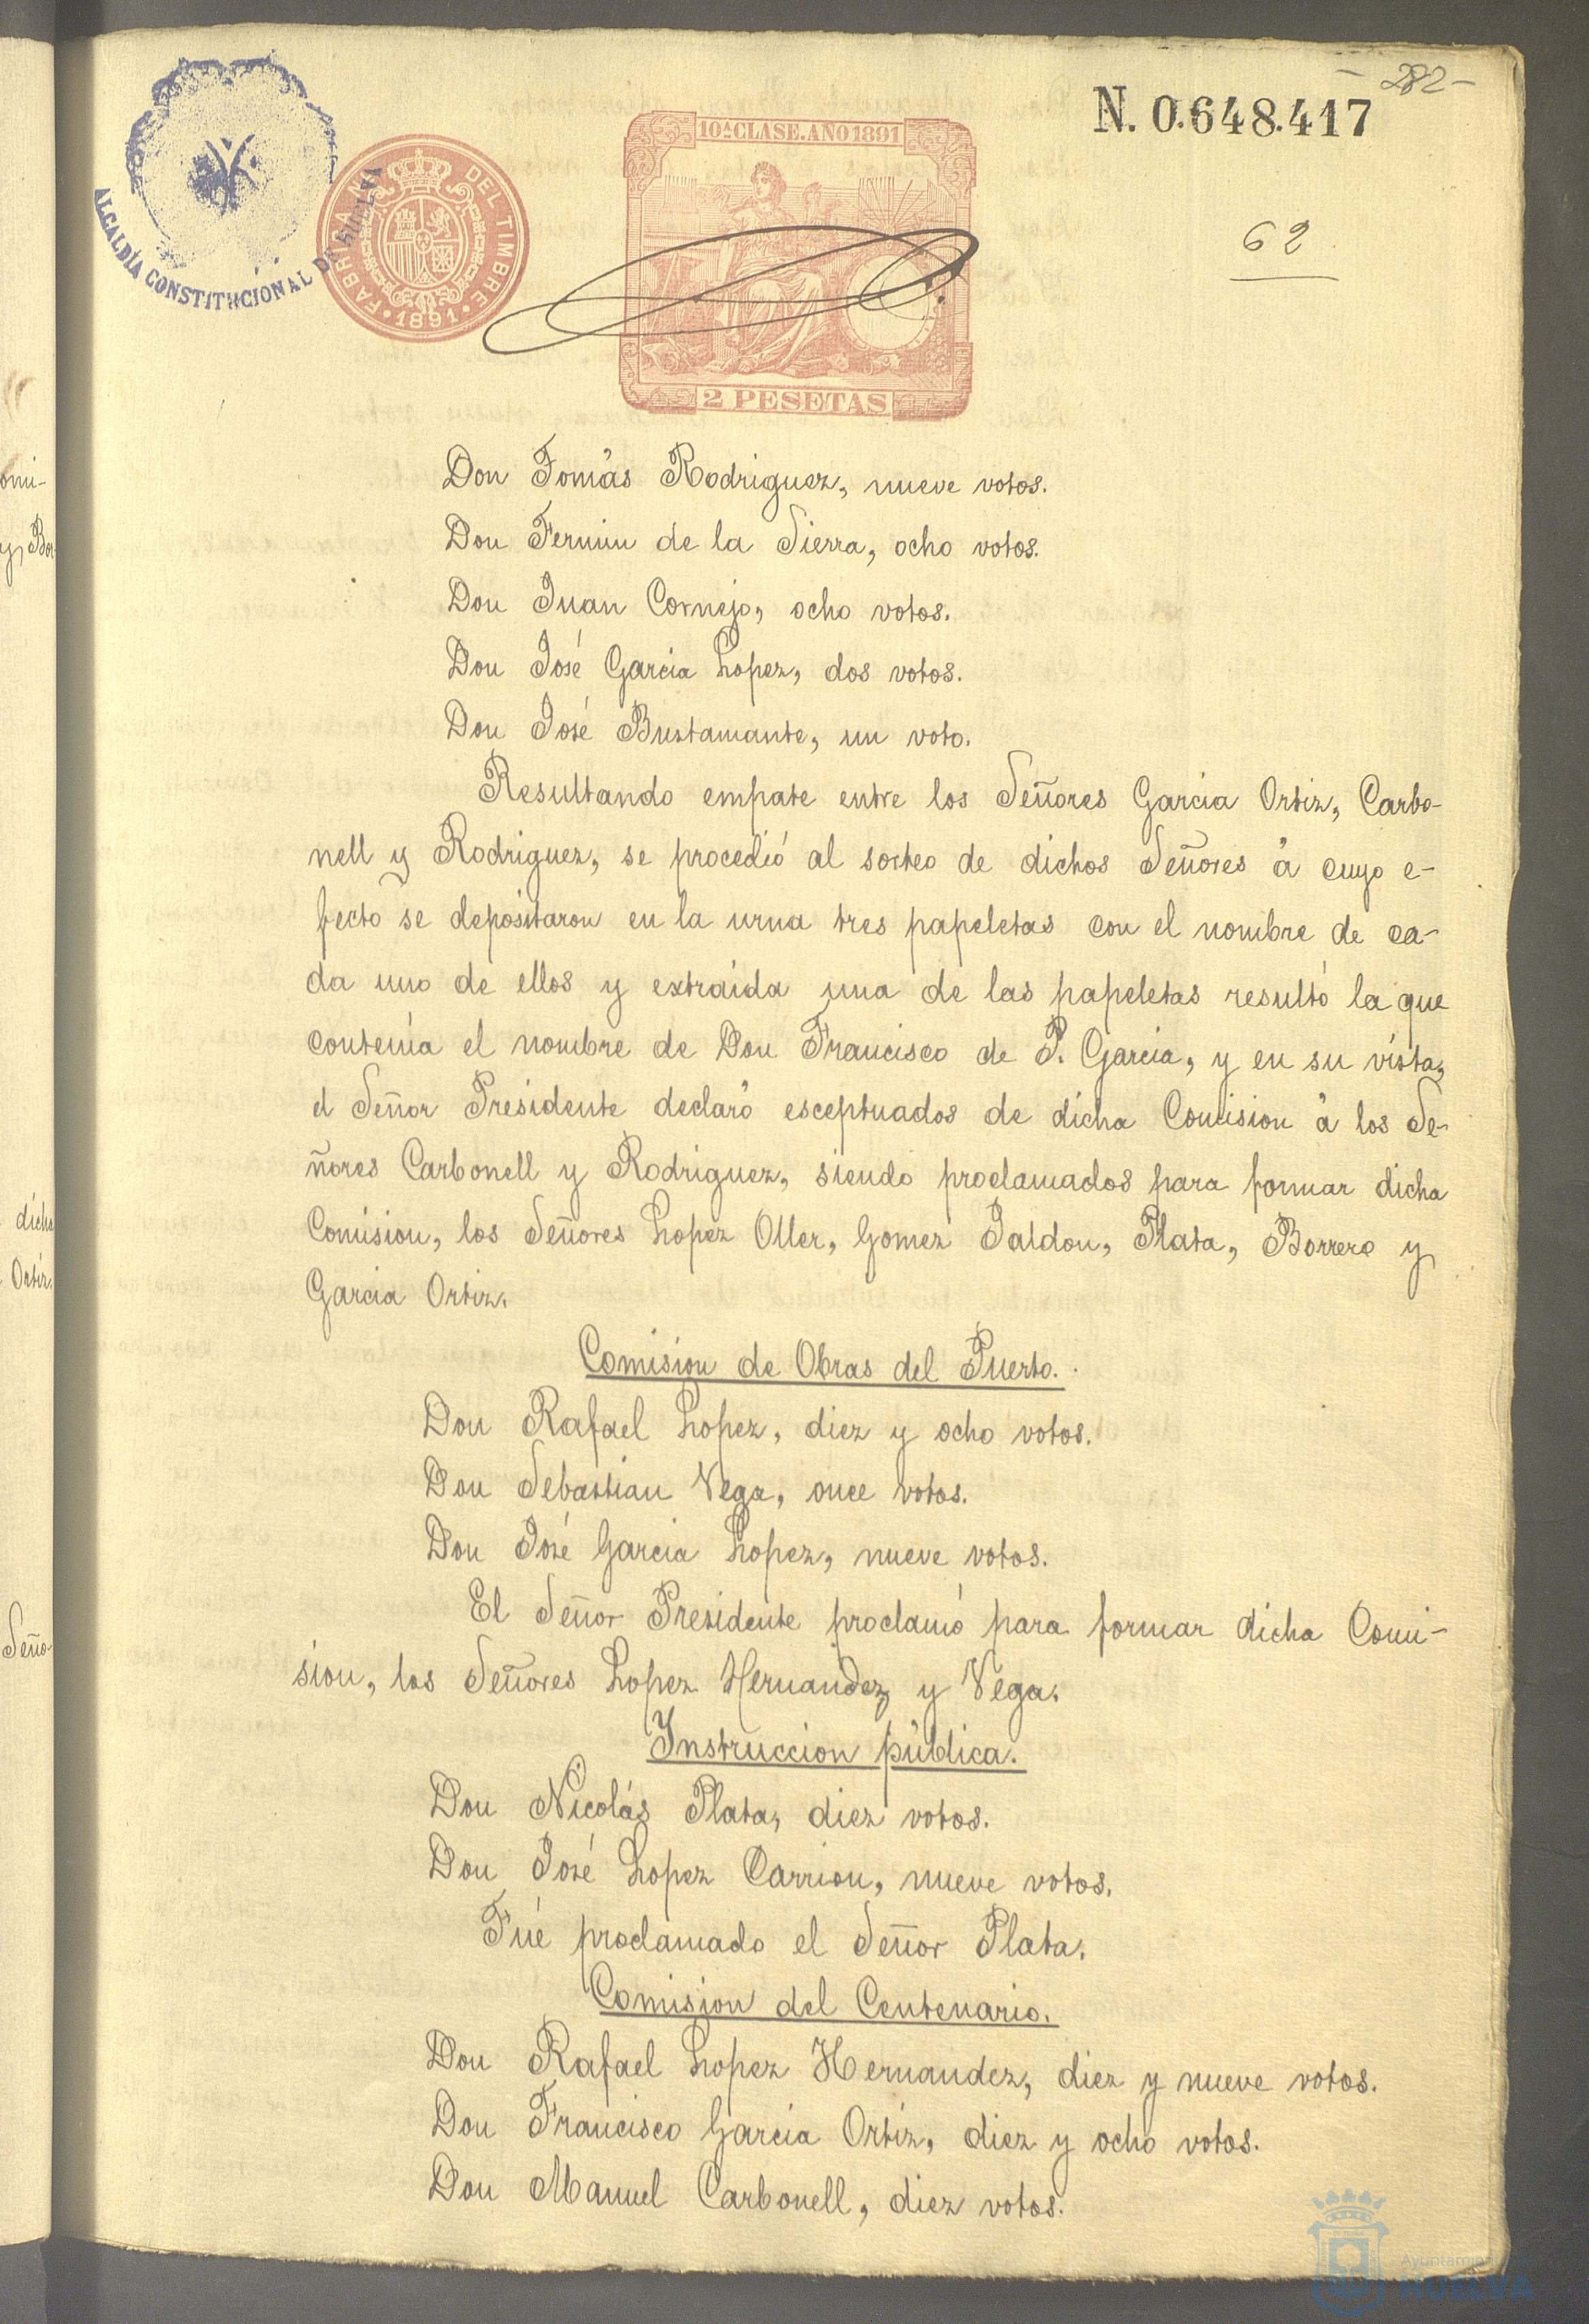 282-
N. 0.648.417
62
ALCALDÍA CONSTITUCIONAL DE HUELVA
FABRICA NAL DEL TIMBRE
1891
10ª CLASE. AÑO 1891
2 PESETAS
Don Tomás Rodriguez, nueve votos.
Don Fermin de la Sierra, ocho votos.
Don Juan Cornejo, ocho votos.
Don José Garcia Lopez, dos votos.
Don José Bustamante, un voto.
Resultando empate entre los Señores Garcia Ortiz, Carbo-
nell y Rodriguez, se procedió al sorteo de dichos Señores á cuyo e-
fecto se depositaron en la urna tres papeletas con el nombre de ca-
da uno de ellos y extraida una de las papeletas resultó la que
contenía el nombre de Don Francisco de P. Garcia, y en su vista,
el Señor Presidente declaró esceptuados de dicha Comision á los Se-
ñores Carbonell y Rodriguez, siendo proclamados para formar dicha
Comision, los Señores Lopez Oller, Gomez Jaldon, Plata, Borrero y
Garcia Ortiz.
Comision de Obras del Puerto.
Don Rafael Lopez, diez y ocho votos.
Don Sebastian Vega, once votos.
Don José Garcia Lopez, nueve votos.
El Señor Presidente proclamó para formar dicha Comi-
sion, los Señores Lopez Hernandez y Vega.
Instruccion pública.
Don Nicolás Plata, diez votos.
Don José Lopez Carrion, nueve votos.
Fué proclamado el Señor Plata.
Comision del Centenario.
Don Rafael Lopez Hernandez, diez y nueve votos.
Don Francisco Garcia Ortiz, diez y ocho votos.
Don Manuel Carbonell, diez votos.
omi-
y, Bor-
dicha
Ortiz.
Seño-
Ayuntamiento de
HUELVA